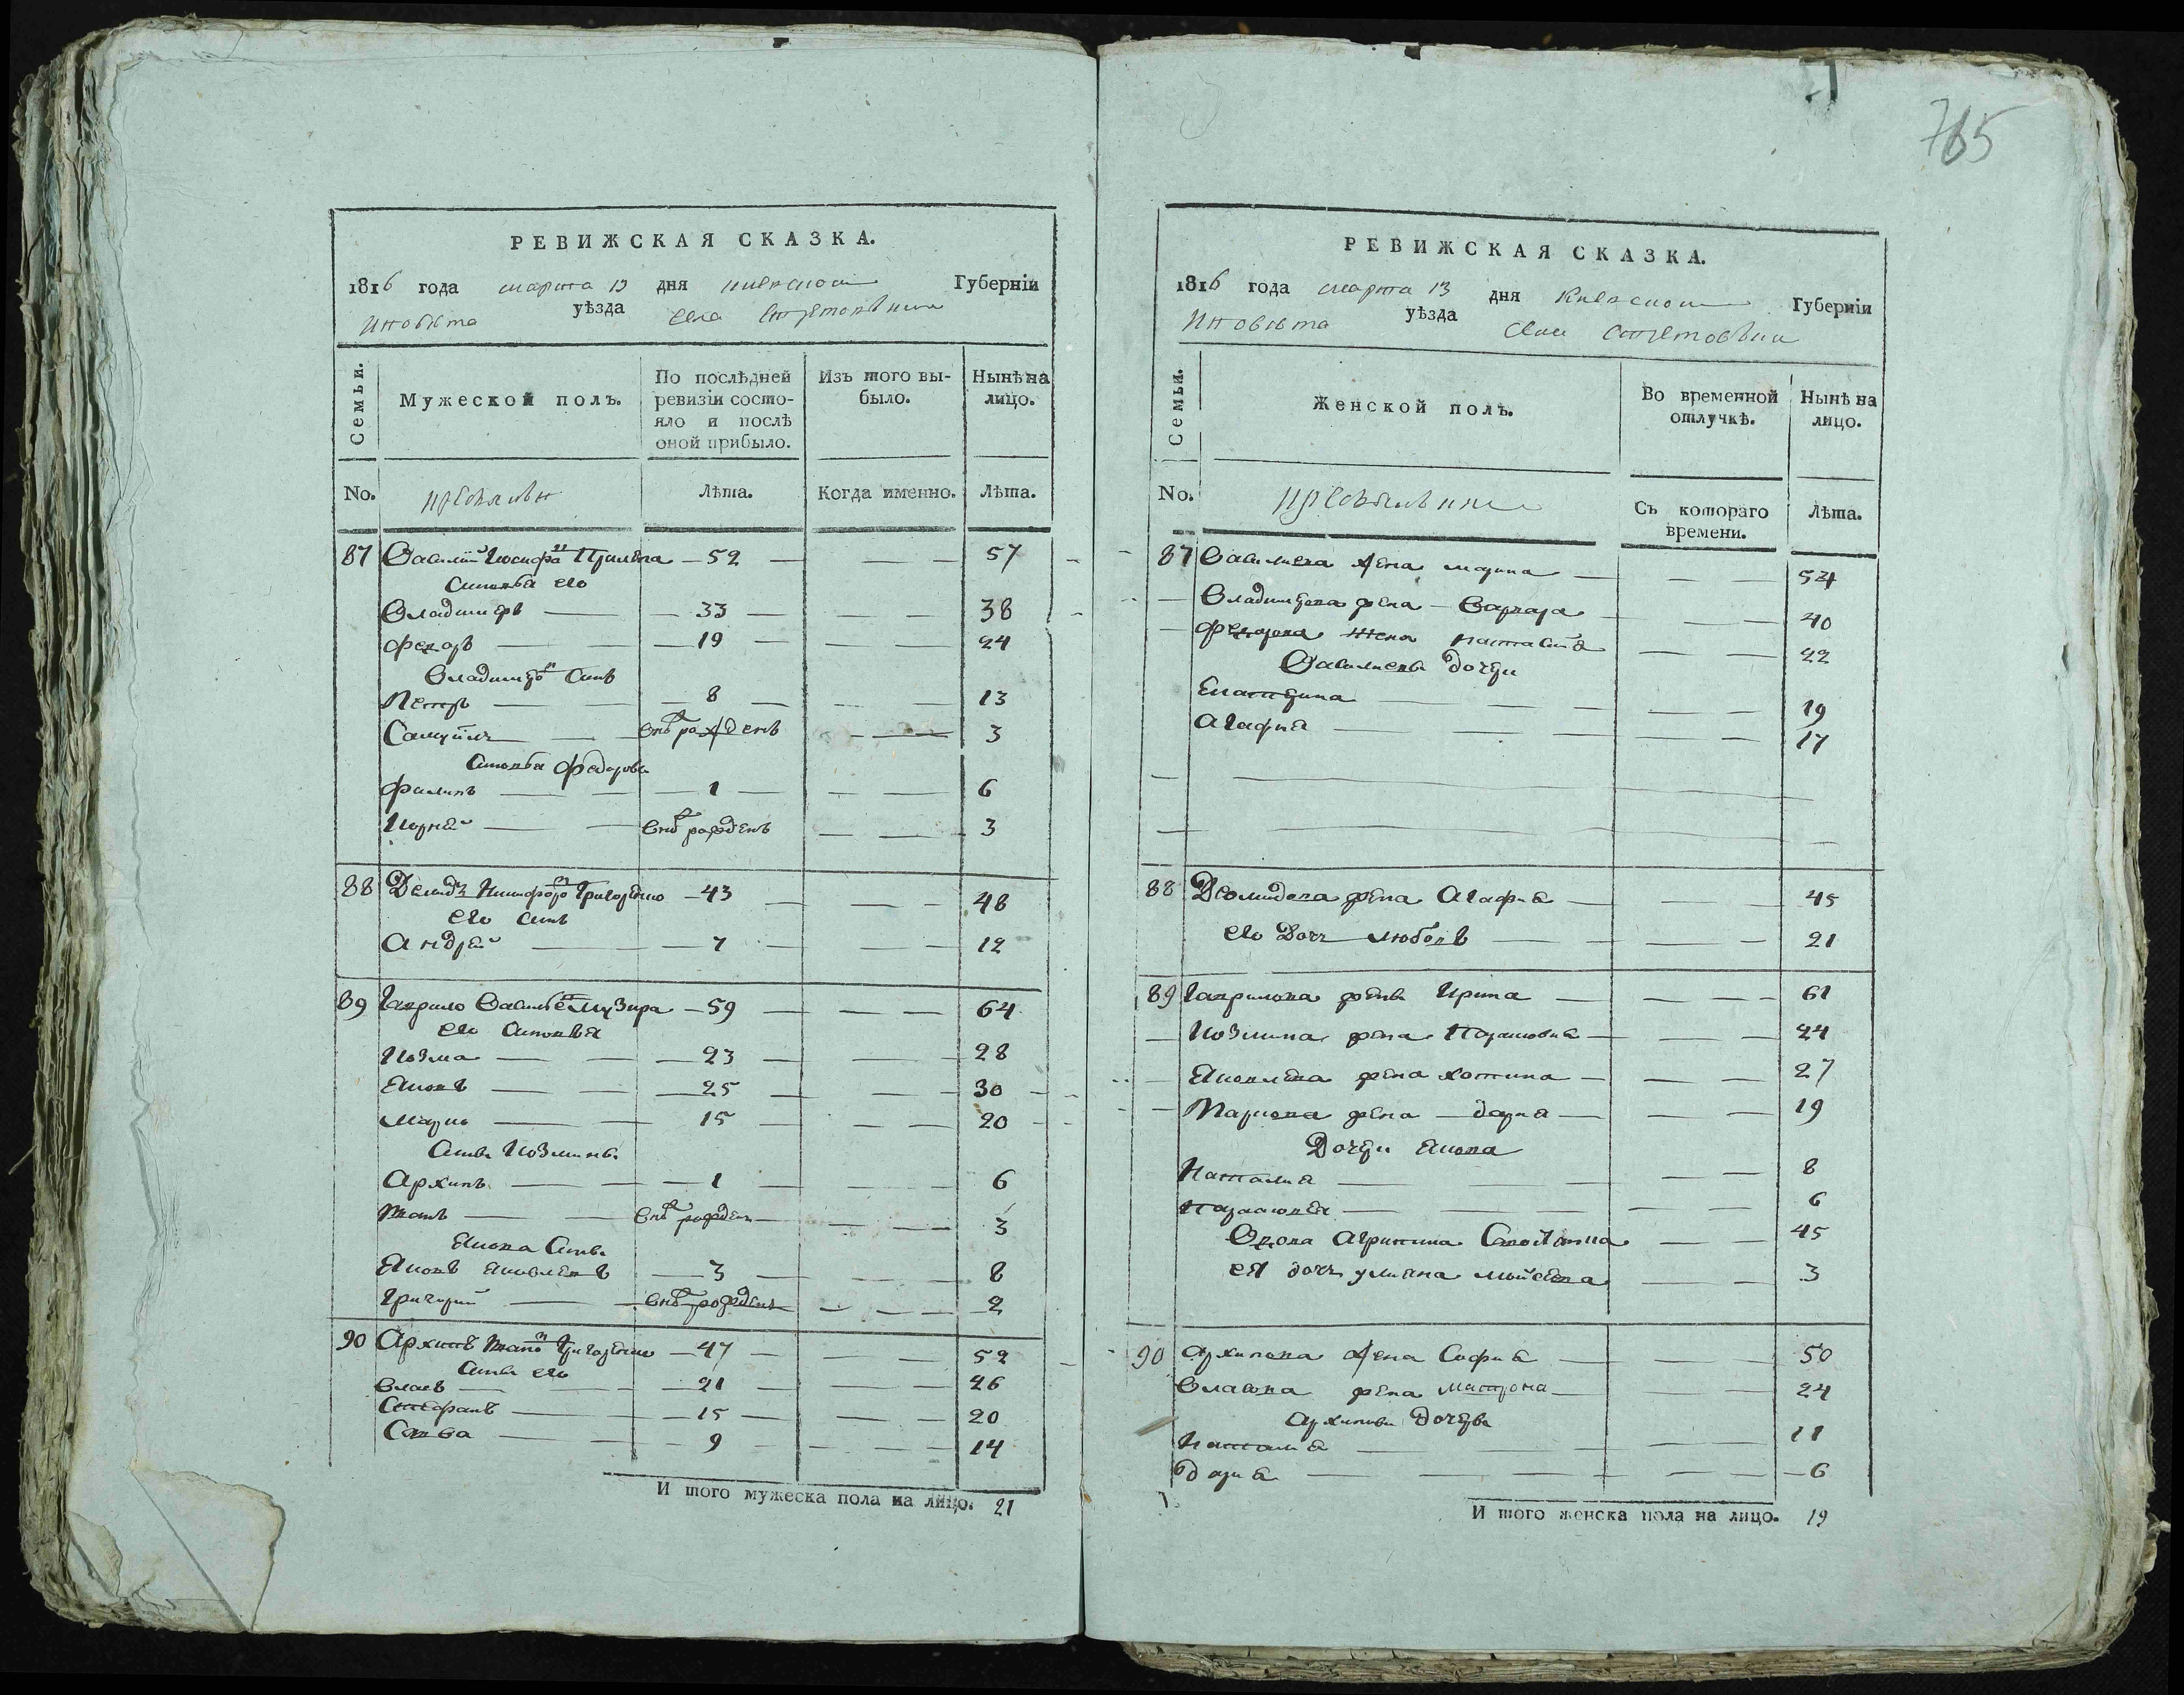 765
РЕВИЖСКАЯ СКАЗКА.
1816 года марта 13 дня Киевской Губерніи
уѣзда села
Семьи. Мужеской полъ. По послѣдней ревизіи состояло и послѣ оной прибыло. Изъ того выбыло. Нынѣ на лицо.
No. Лѣта. Когда именно. Лѣта.
87 Василий Иосифо 52 57
его
Владимиръ 33 38
Федоръ 19 24
Владимиро Синъ
Петръ 8 13
Самуйлъ внѣ рожденъ 3
Федорови
Филипъ 1 6
Корнѣй внѣ рожденъ 3
88 Демидъ Никифоро Григоренко 43 48
его синъ
Андрей 7 12
89 Гаврило Василье Музира 59 64
его Синовя
Козма 23 28
Яковъ 25 30
Марко 15 20
Сини Козмини
Архипъ 1 6
Иванъ внѣ рожден 3
Якова Сини
Яковъ Яковлевъ 3 8
Григорий внѣ рожденъ 2
90 Архипъ Ивано Григоренко 47 52
Сини его
Власъ 21 26
Стефанъ 15 20
Сава 9 14
И того мужеска пола на лицо. 21
РЕВИЖСКАЯ СКАЗКА.
1816 года марта 13 дня Киевской Губерніи
уѣзда
Семьи. Женской полъ. Во временной отлучкѣ. Нынѣ на лицо.
No. Съ котораго времени. Лѣта.
87 Василиева жена марина 54
Владимирова жена Варвара 40
Федорова жена настасия 22
Василиеви дочери
Екатерина 19
Агафия 17
88 Демидова жена Агафия 45
его Дочь любовъ 21
89 Гаврилова жена Ирина 61
Козмина жена Парасковия 24
Яковлева жена хотина 27
Маркова жена дария 19
Дочери Якова
Наталия 8
Парасковия 6
Вдова Агрипина 45
ея дочь улияна 3
90 Архипова жена София 50
Власова жена Матрона 24
Архипови Дочери
Наталия 11
Дария 6
И того женска пола на лицо. 19